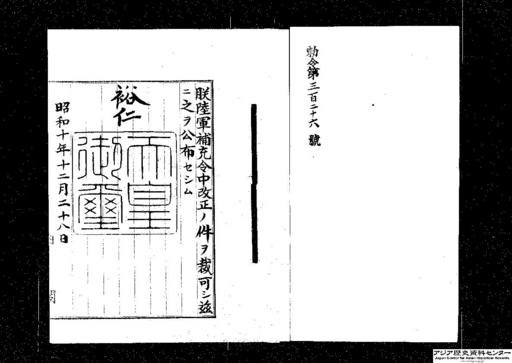 勅令第三百二十六號
朕陸軍補充令中改正ノ件ヲ裁可シ茲
ニ之ヲ公布セシム
裕仁
天皇
御璽
昭和十年十二月二十八日
アジア歴史資料センター
Japan Center for Asian Historical Records